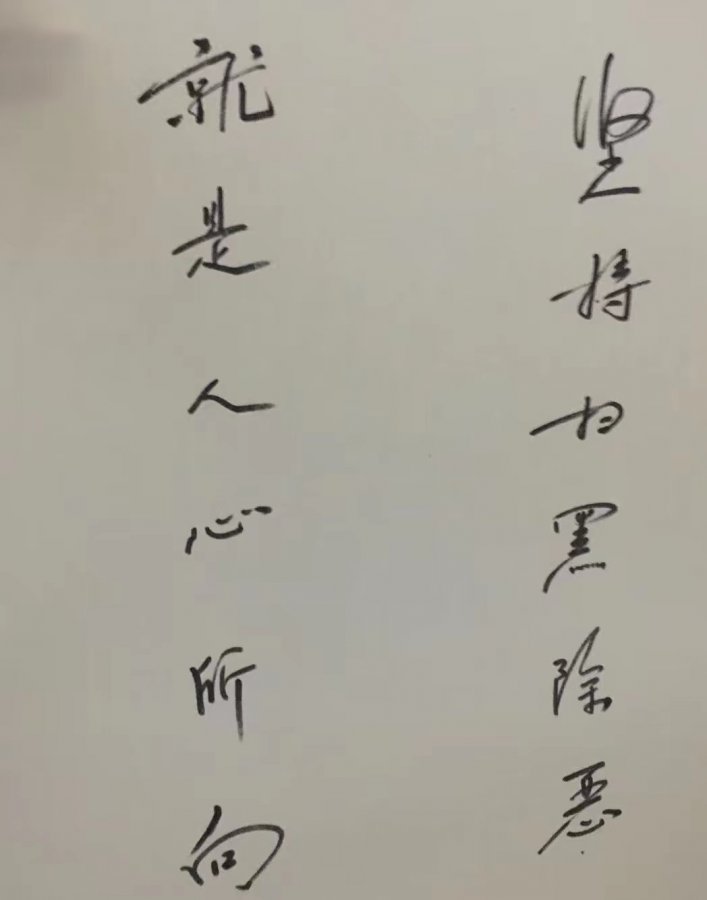 坚持扫黑除恶
就是人心所向